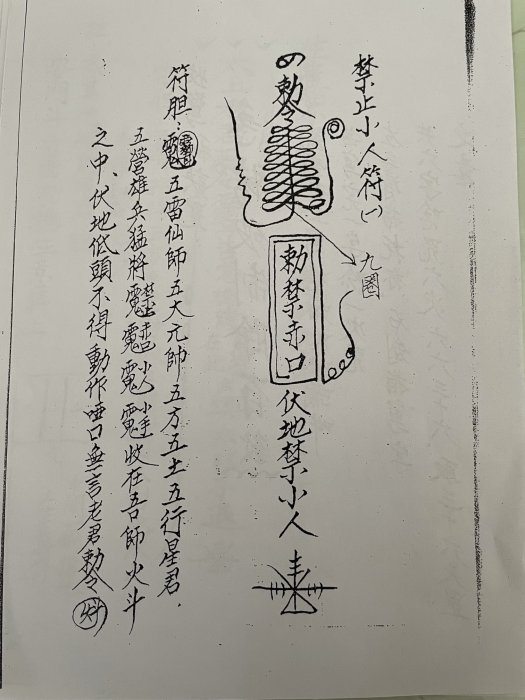 禁止小人符(一)
勅令
九圈
勅禁赤口
伏地禁小人
符胆：五雷仙師五大元帥五方五土五行星君．
五營雄兵猛將收在吾師火斗
之中、伏地低頭不得動作哑口無言老君勅令